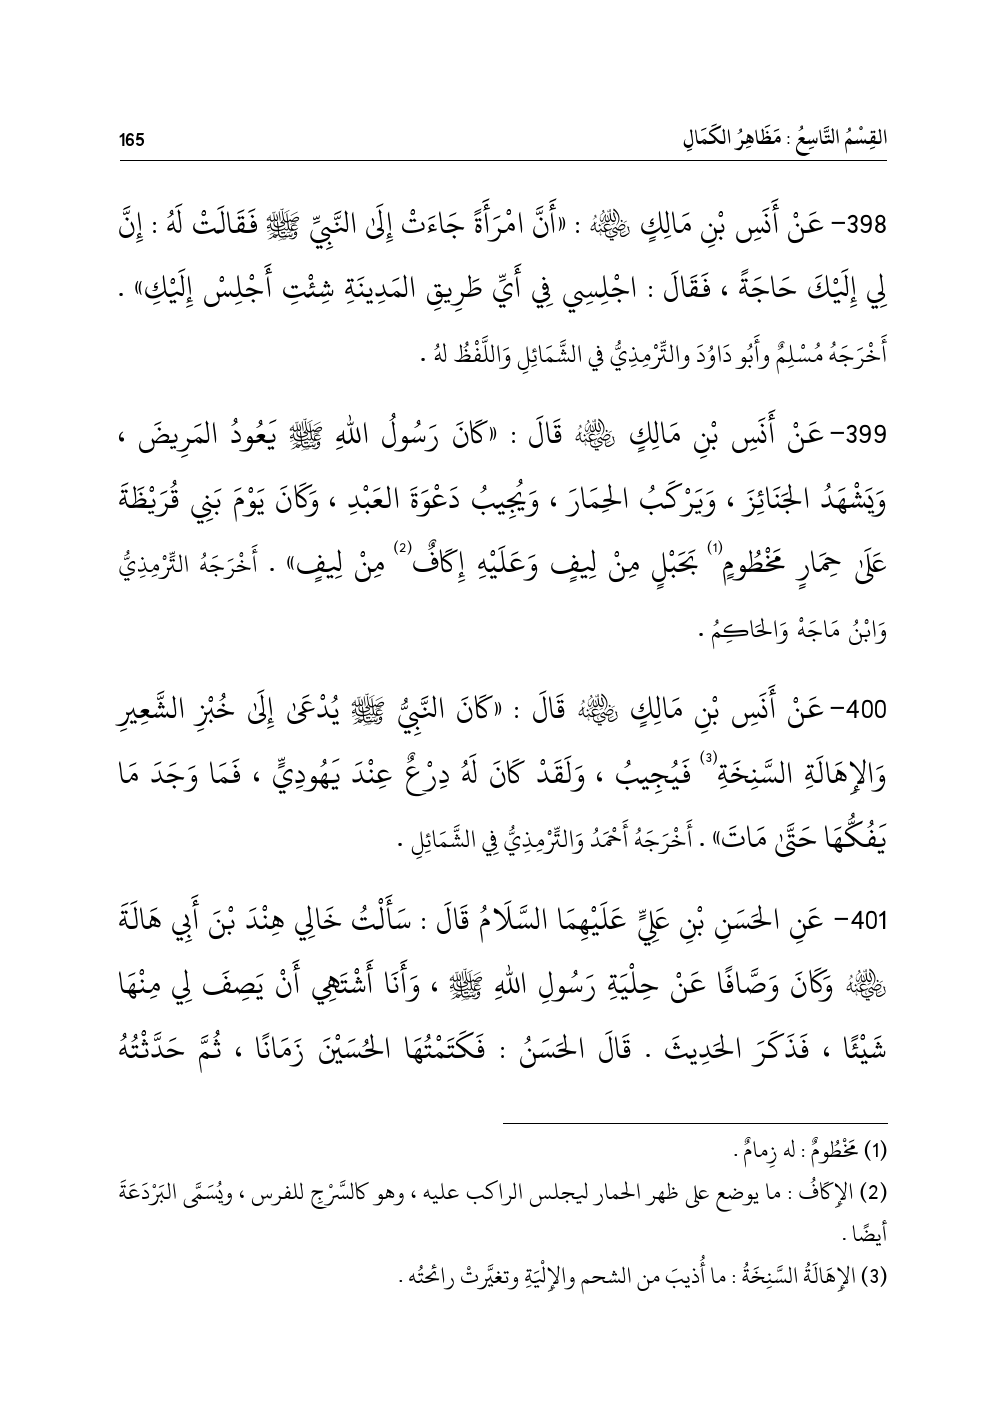 القِسْمُ التَّاسِعُ : مَظَاهِرُ الكَمَالِ 165
398- عَنْ أَنَسِ بْنِ مَالِكٍ رضي الله عنه : «أَنَّ امْرَأَةً جَاءَتْ إِلَىٰ النَّبِيِّ ﷺ فَقَالَتْ لَهُ : إِنَّ
لِي إِلَيْكَ حَاجَةً ، فَقَالَ : اجْلِسِي فِي أَيِّ طَرِيقِ المَدِينَةِ شِئْتِ أَجْلِسْ إِلَيْكِ» .
أَخْرَجَهُ مُسْلِمٌ وأَبُو دَاوُدَ والتِّرْمِذِيُّ في الشَّمَائِلِ وَاللَّفْظُ لهُ .
399- عَنْ أَنَسِ بْنِ مَالِكٍ رضي الله عنه قَالَ : «كَانَ رَسُولُ اللهِ ﷺ يَعُودُ المَرِيضَ ،
وَيَشْهَدُ الجَنَائِزَ ، وَيَرْكَبُ الحِمَارَ ، وَيُجِيبُ دَعْوَةَ العَبْدِ ، وَكَانَ يَوْمَ بَنِي قُرَيْظَةَ
عَلَىٰ حِمَارٍ مَخْطُومٍ(1) بَحَبْلٍ مِنْ لِيفٍ وَعَلَيْهِ إِكَافٌ(2) مِنْ لِيفٍ» . أَخْرَجَهُ التِّرْمِذِيُّ
وَابْنُ مَاجَهْ وَالحَاكِمُ .
400- عَنْ أَنَسِ بْنِ مَالِكٍ رضي الله عنه قَالَ : «كَانَ النَّبِيُّ ﷺ يُدْعَىٰ إِلَىٰ خُبْزِ الشَّعِيرِ
وَالإِهَالَةِ السَّنِخَةِ(3) فَيُجِيبُ ، وَلَقَدْ كَانَ لَهُ دِرْعٌ عِنْدَ يَهُودِيٍّ ، فَمَا وَجَدَ مَا
يَفُكُّهَا حَتَّىٰ مَاتَ» . أَخْرَجَهُ أَحْمَدُ وَالتِّرْمِذِيُّ فِي الشَّمَائِلِ .
401- عَنِ الحَسَنِ بْنِ عَلِيٍّ عَلَيْهِمَا السَّلَامُ قَالَ : سَأَلْتُ خَالِي هِنْدَ بْنَ أَبِي هَالَةَ
رضي الله عنه وَكَانَ وَصَّافًا عَنْ حِلْيَةِ رَسُولِ اللهِ ﷺ ، وَأَنَا أَشْتَهِي أَنْ يَصِفَ لِي مِنْهَا
شَيْئًا ، فَذَكَرَ الحَدِيثَ . قَالَ الحَسَنُ : فَكَتَمْتُهَا الحُسَيْنَ زَمَانًا ، ثُمَّ حَدَّثْتُهُ
(1) مَخْطُومٌ : له زِمامٌ .
(2) الإِكَافُ : ما يوضع على ظهر الحمار ليجلس الراكب عليه ، وهو كالسَّرْجِ للفرس ، ويُسَمَّى البَرْدَعَةَ
أيضًا .
(3) الإِهَالَةُ السَّنِخَةُ : ما أُذيبَ من الشحم والإِلْيَةِ وتغيَّرتْ رائحتُه .